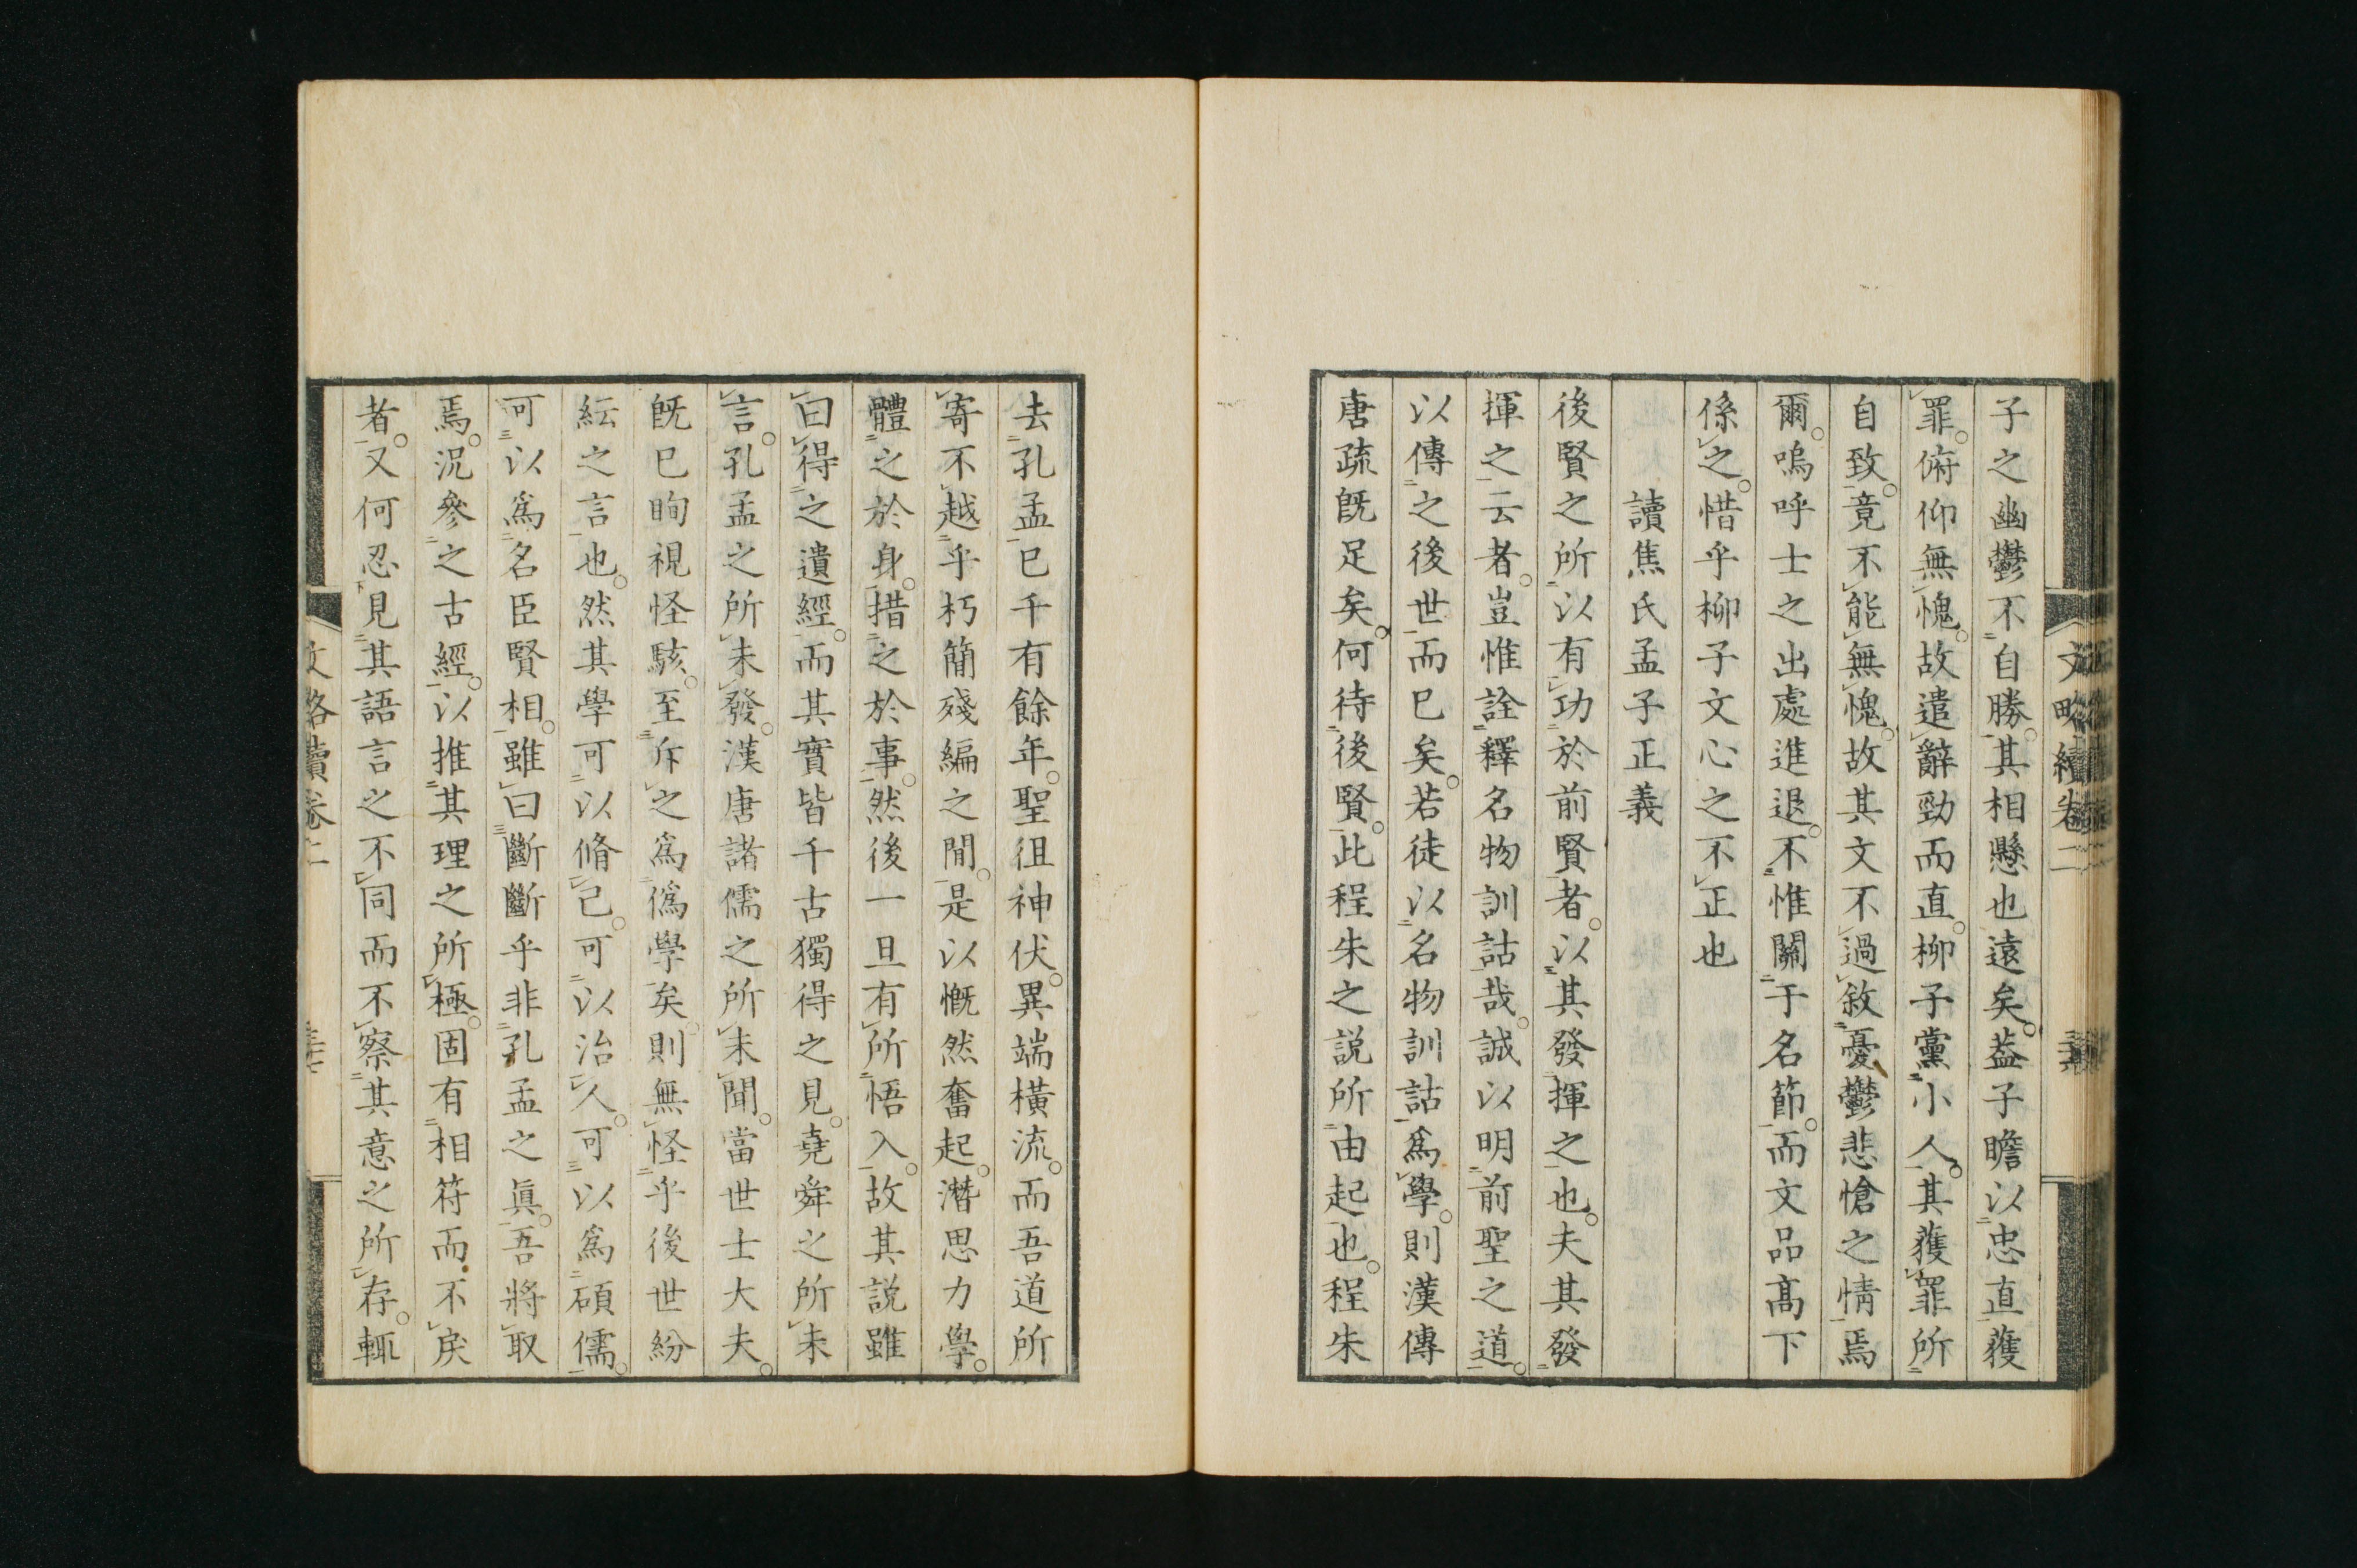 子之幽鬱不自勝。其相懸也遠矣。葢子瞻以忠直獲
罪。俯仰無愧。故遣辭勁而直。柳子黨小人。其獲罪所
自致。竟不能無愧。故其文不過敘憂鬱悲愴之情焉
爾。嗚呼士之出處進退。不惟關于名節。而文品高下
係之。惜乎柳子文心之不正也
讀焦氏孟子正義
後賢之所以有功於前賢者。以其發揮之也。夫其發
揮之云者。豈惟詮釋名物訓詁哉。誠以明前聖之道。
以傳之後世而已矣。若徒以名物訓詁爲學。則漢傳
唐疏既足矣。何待後賢。此程朱之説所由起也。程朱
去孔孟已千有餘年。聖徂神伏。異端橫流。而吾道所
寄不越乎朽簡殘編之間。是以慨然奮起。潛思力學。
體之於身。措之於事。然後一旦有所悟入。故其説雖
曰得之遺經。而其實皆千古獨得之見。堯舜之所未
言。孔孟之所未發。漢唐諸儒之所未聞。當世士大夫。
既已眴視怪駭。至斥之爲僞學矣。則無怪乎後世紛
紜之言也。然其學可以脩己。可以治人。可以爲碩儒。
可以爲名臣賢相。雖曰斷斷乎非孔孟之眞。吾將取
焉。況參之古經。以推其理之所極。固有相符而不戾
者。又何忍見其語言之不同而不察其意之所存。輒
文略續卷二
文略續卷二